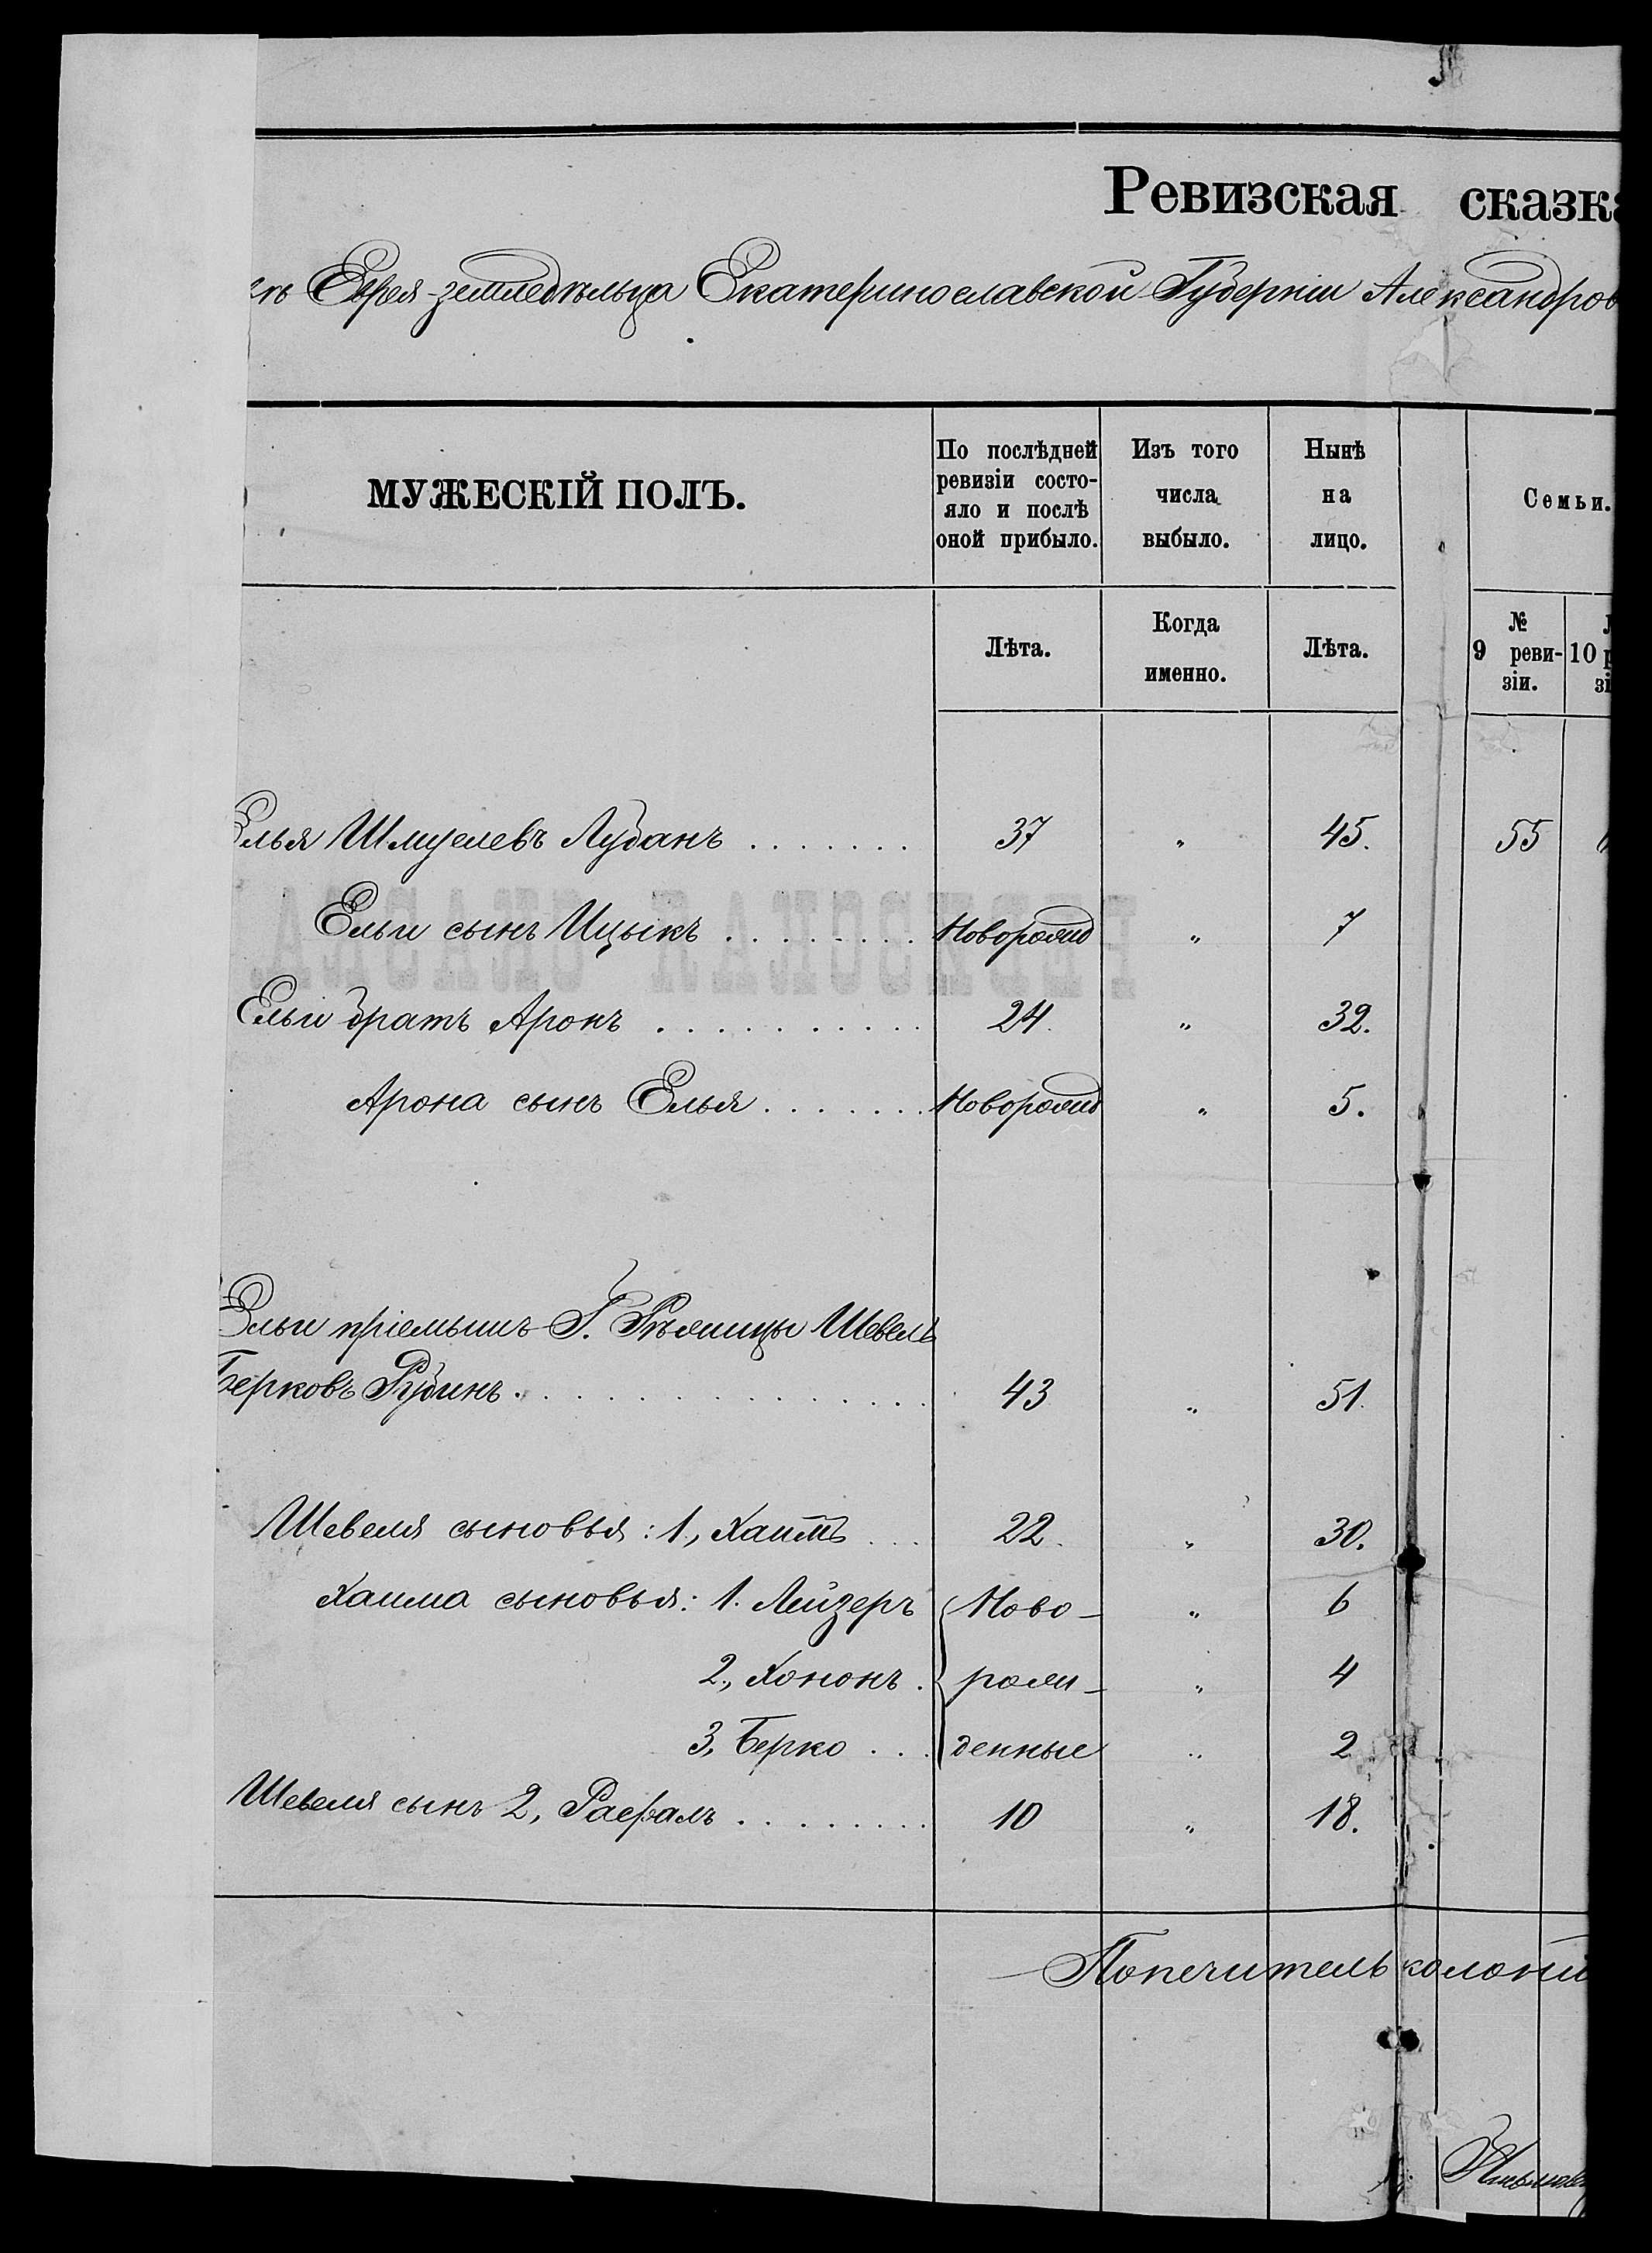 Ревизская сказка
Еврея-земледѣльца Екатеринославской Губерніи Александров
МУЖЕСКІЙ ПОЛЪ.
По послѣдней
ревизіи состо-
яло и послѣ
оной прибыло.
Изъ того
числа
выбыло.
Нынѣ
на
лицо.
Семьи.
Лѣта.
Когда
именно.
Лѣта.
№
9 реви-
зіи.
10
Елья Шмуелевъ Лубанъ . . . . . . . 37 „ 45. 55
Ельи сынъ Ицыкъ . . . . . . . . Новорожд „ 7
Ельи братъ Аронъ . . . . . . . . . . . 24. „ 32.
Арона сынъ Елья . . . . . . . Новорожд „ 5.
Ельи пріемышъ Г. Рѣжицы Шевель
Берковъ Рубинъ . . . . . . . . . . . . . 43 „ 51.
Шевеля сыновья: 1, Хаимъ . . . 22. „ 30.
Хаима сыновья: 1. Лейзеръ Ново- „ 6
2, Хононъ . рож- „ 4
3, Берко . . . денные „ 2
Шевеля сынъ 2, Рафаль . . . . . . . . 10 „ 18.
Попечитель колоні